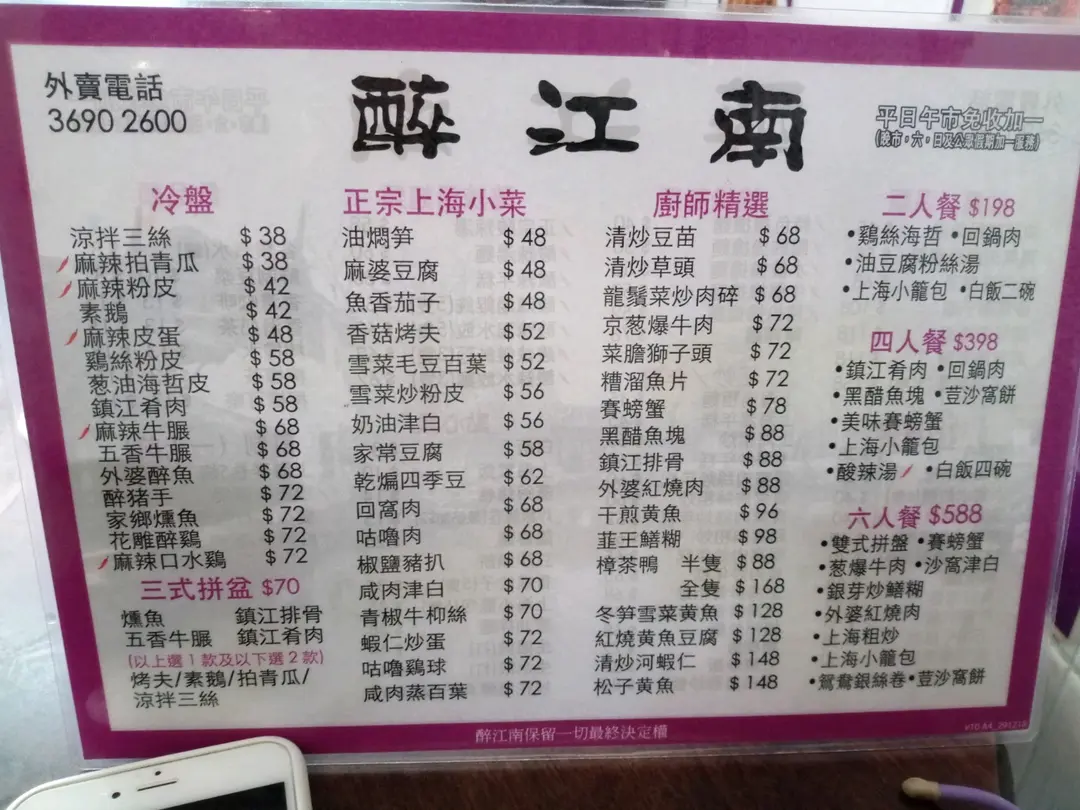 外賣電話
3690 2600
醉江南
平日午市免收加一
冷盤
涼拌三絲 $38
麻辣拍青瓜 $38
麻辣粉皮 $42
素鵝 $42
麻辣皮蛋 $48
鷄絲粉皮 $58
葱油海哲皮 $58
鎮江肴肉 $58
麻辣牛𦟌 $68
五香牛𦟌 $68
外婆醉魚 $68
醉猪手 $72
家鄉燻魚 $72
花雕醉鷄 $72
麻辣口水鷄 $72
三式拼盆 $70
燻魚 鎮江排骨
五香牛𦟌 鎮江肴肉
(以上選1款及以下選2款)
烤夫/素鵝/拍青瓜/
涼拌三絲
正宗上海小菜
油燜笋 $48
麻婆豆腐 $48
魚香茄子 $48
香菇烤夫 $52
雪菜毛豆百葉 $52
雪菜炒粉皮 $56
奶油津白 $56
家常豆腐 $58
乾煸四季豆 $62
回窩肉 $68
咕嚕肉 $68
椒鹽豬扒 $68
咸肉津白 $70
青椒牛柳絲 $70
蝦仁炒蛋 $72
咕嚕鷄球 $72
咸肉蒸百葉 $72
廚師精選
清炒豆苗 $68
清炒草頭 $68
龍鬚菜炒肉碎 $68
京葱爆牛肉 $72
菜膽獅子頭 $72
糟溜魚片 $72
賽螃蟹 $78
黑醋魚塊 $88
鎮江排骨 $88
外婆紅燒肉 $88
干煎黄魚 $96
韮王鱔糊 $98
樟茶鴨 半隻 $88
全隻 $168
冬笋雪菜黄魚 $128
紅燒黄魚豆腐 $128
清炒河蝦仁 $148
松子黄魚 $148
二人餐 $198
•鷄絲海哲 •回鍋肉
•油豆腐粉絲湯
•上海小籠包 •白飯二碗
四人餐 $398
•鎮江肴肉 •回鍋肉
•黑醋魚塊 •荳沙窩餅
•美味賽螃蟹
•上海小籠包
•酸辣湯 •白飯四碗
六人餐 $588
•雙式拼盤 •賽螃蟹
•葱爆牛肉 •沙窩津白
•銀芽炒鱔糊
•外婆紅燒肉
•上海粗炒
•上海小籠包
•鴛鴦銀絲卷 •荳沙窩餅
醉江南保留一切最終決定權